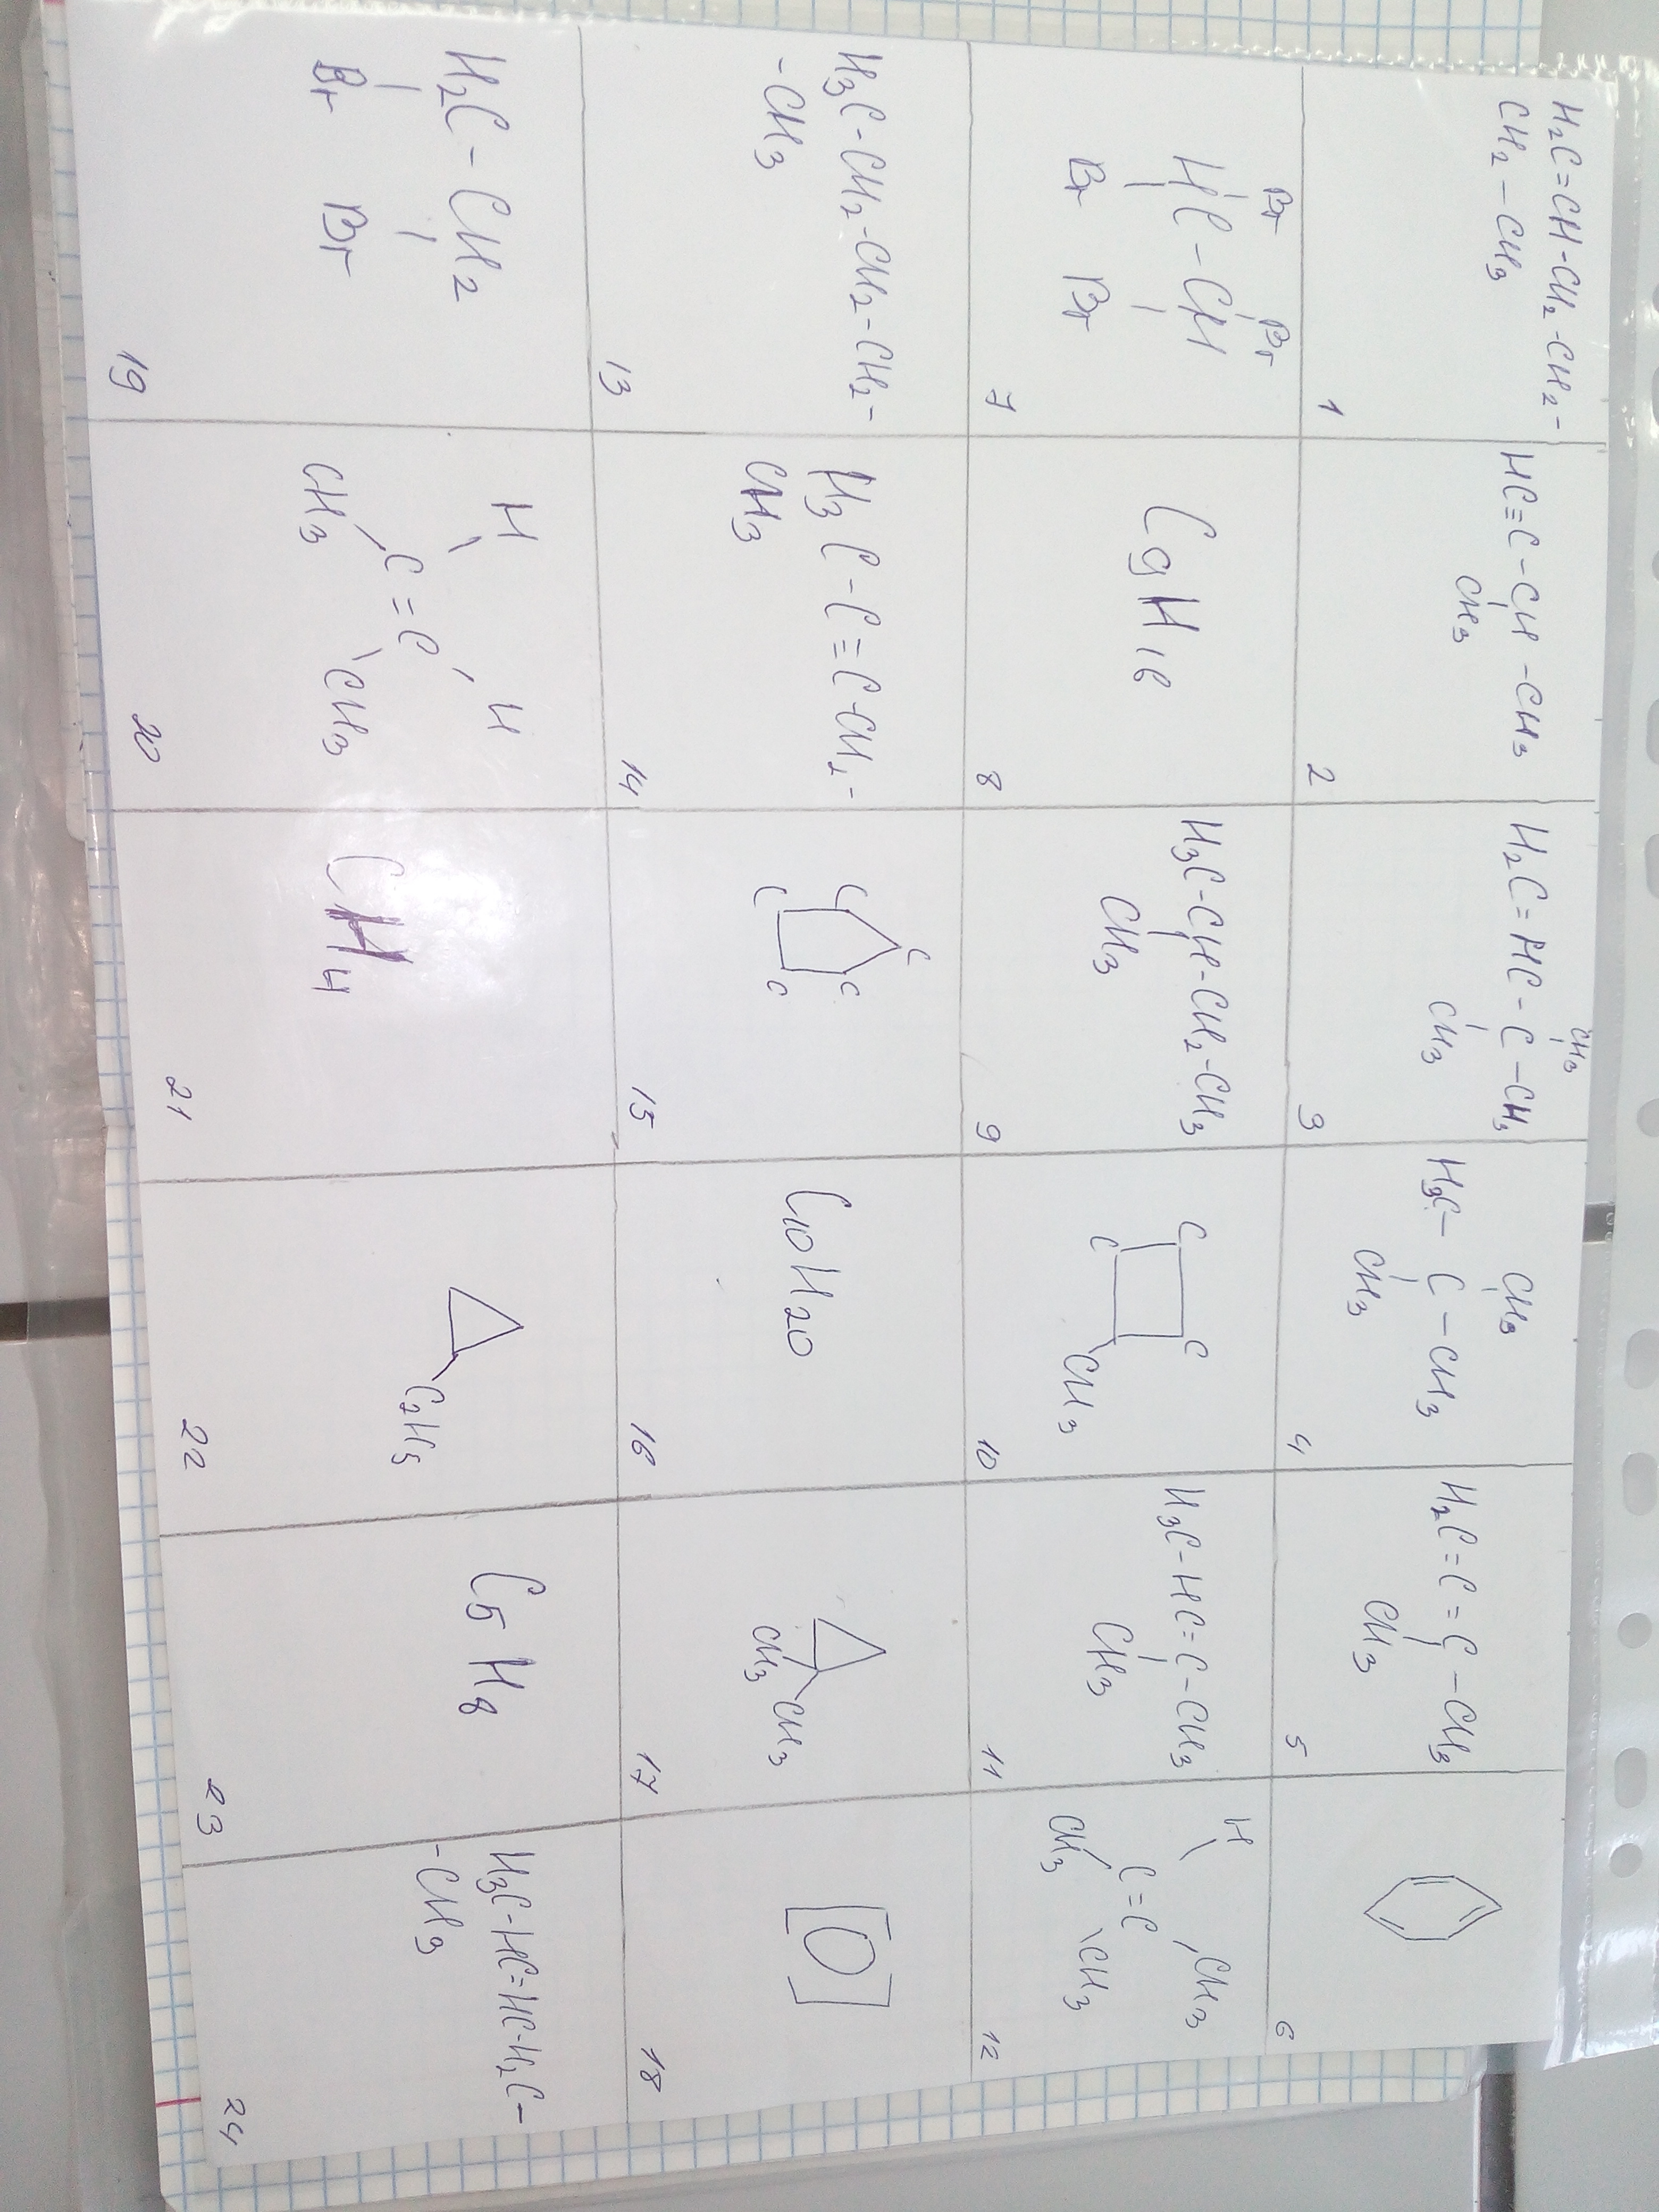 H₂C=CH-CH₂-CH₂-
CH₂-CH₃
1
HC≡C-CH-CH₃
CH₃
2
CH₃
H₂C=HC-C-CH₃
CH₃
3
CH₃
H₃C-C-CH₃
CH₃
4
H₂C=C=C-CH₃
CH₃
5
6
Br Br
HC-CH
Br Br
7
C₉H₁₆
8
H₃C-CH-CH₂-CH₃
CH₃
9
C C
C CH₃
10
H₃C-HC=C-CH₃
CH₃
11
H CH₃
C=C
CH₃ CH₃
12
H₃C-CH₂-CH₂-CH₂-
-CH₃
13
H₃C-C≡C-CH₂-
CH₃
14
C
C C
C C
15
C₁₀H₂₀
16
CH₃ CH₃
17
18
H₂C-CH₂
Br Br
19
H H
C=C
CH₃ CH₃
20
CH₄
21
C₂H₅
22
C₅H₈
23
H₃C-HC=HC-H₂C-
-CH₃
24